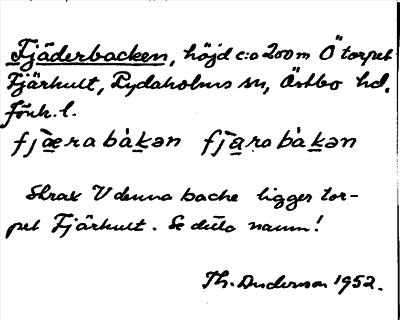 Fjäderbacken, höjd c:a 200 m Ö torpet
Fjärhult, Rydaholms sn, Östbo hd,
Jönk. l.
fjæ̀rabàkən fjàrabàkən
Strax V denna backe ligger tor-
pet Fjärhult. Se detta namn!
Th. Anderson 1952.